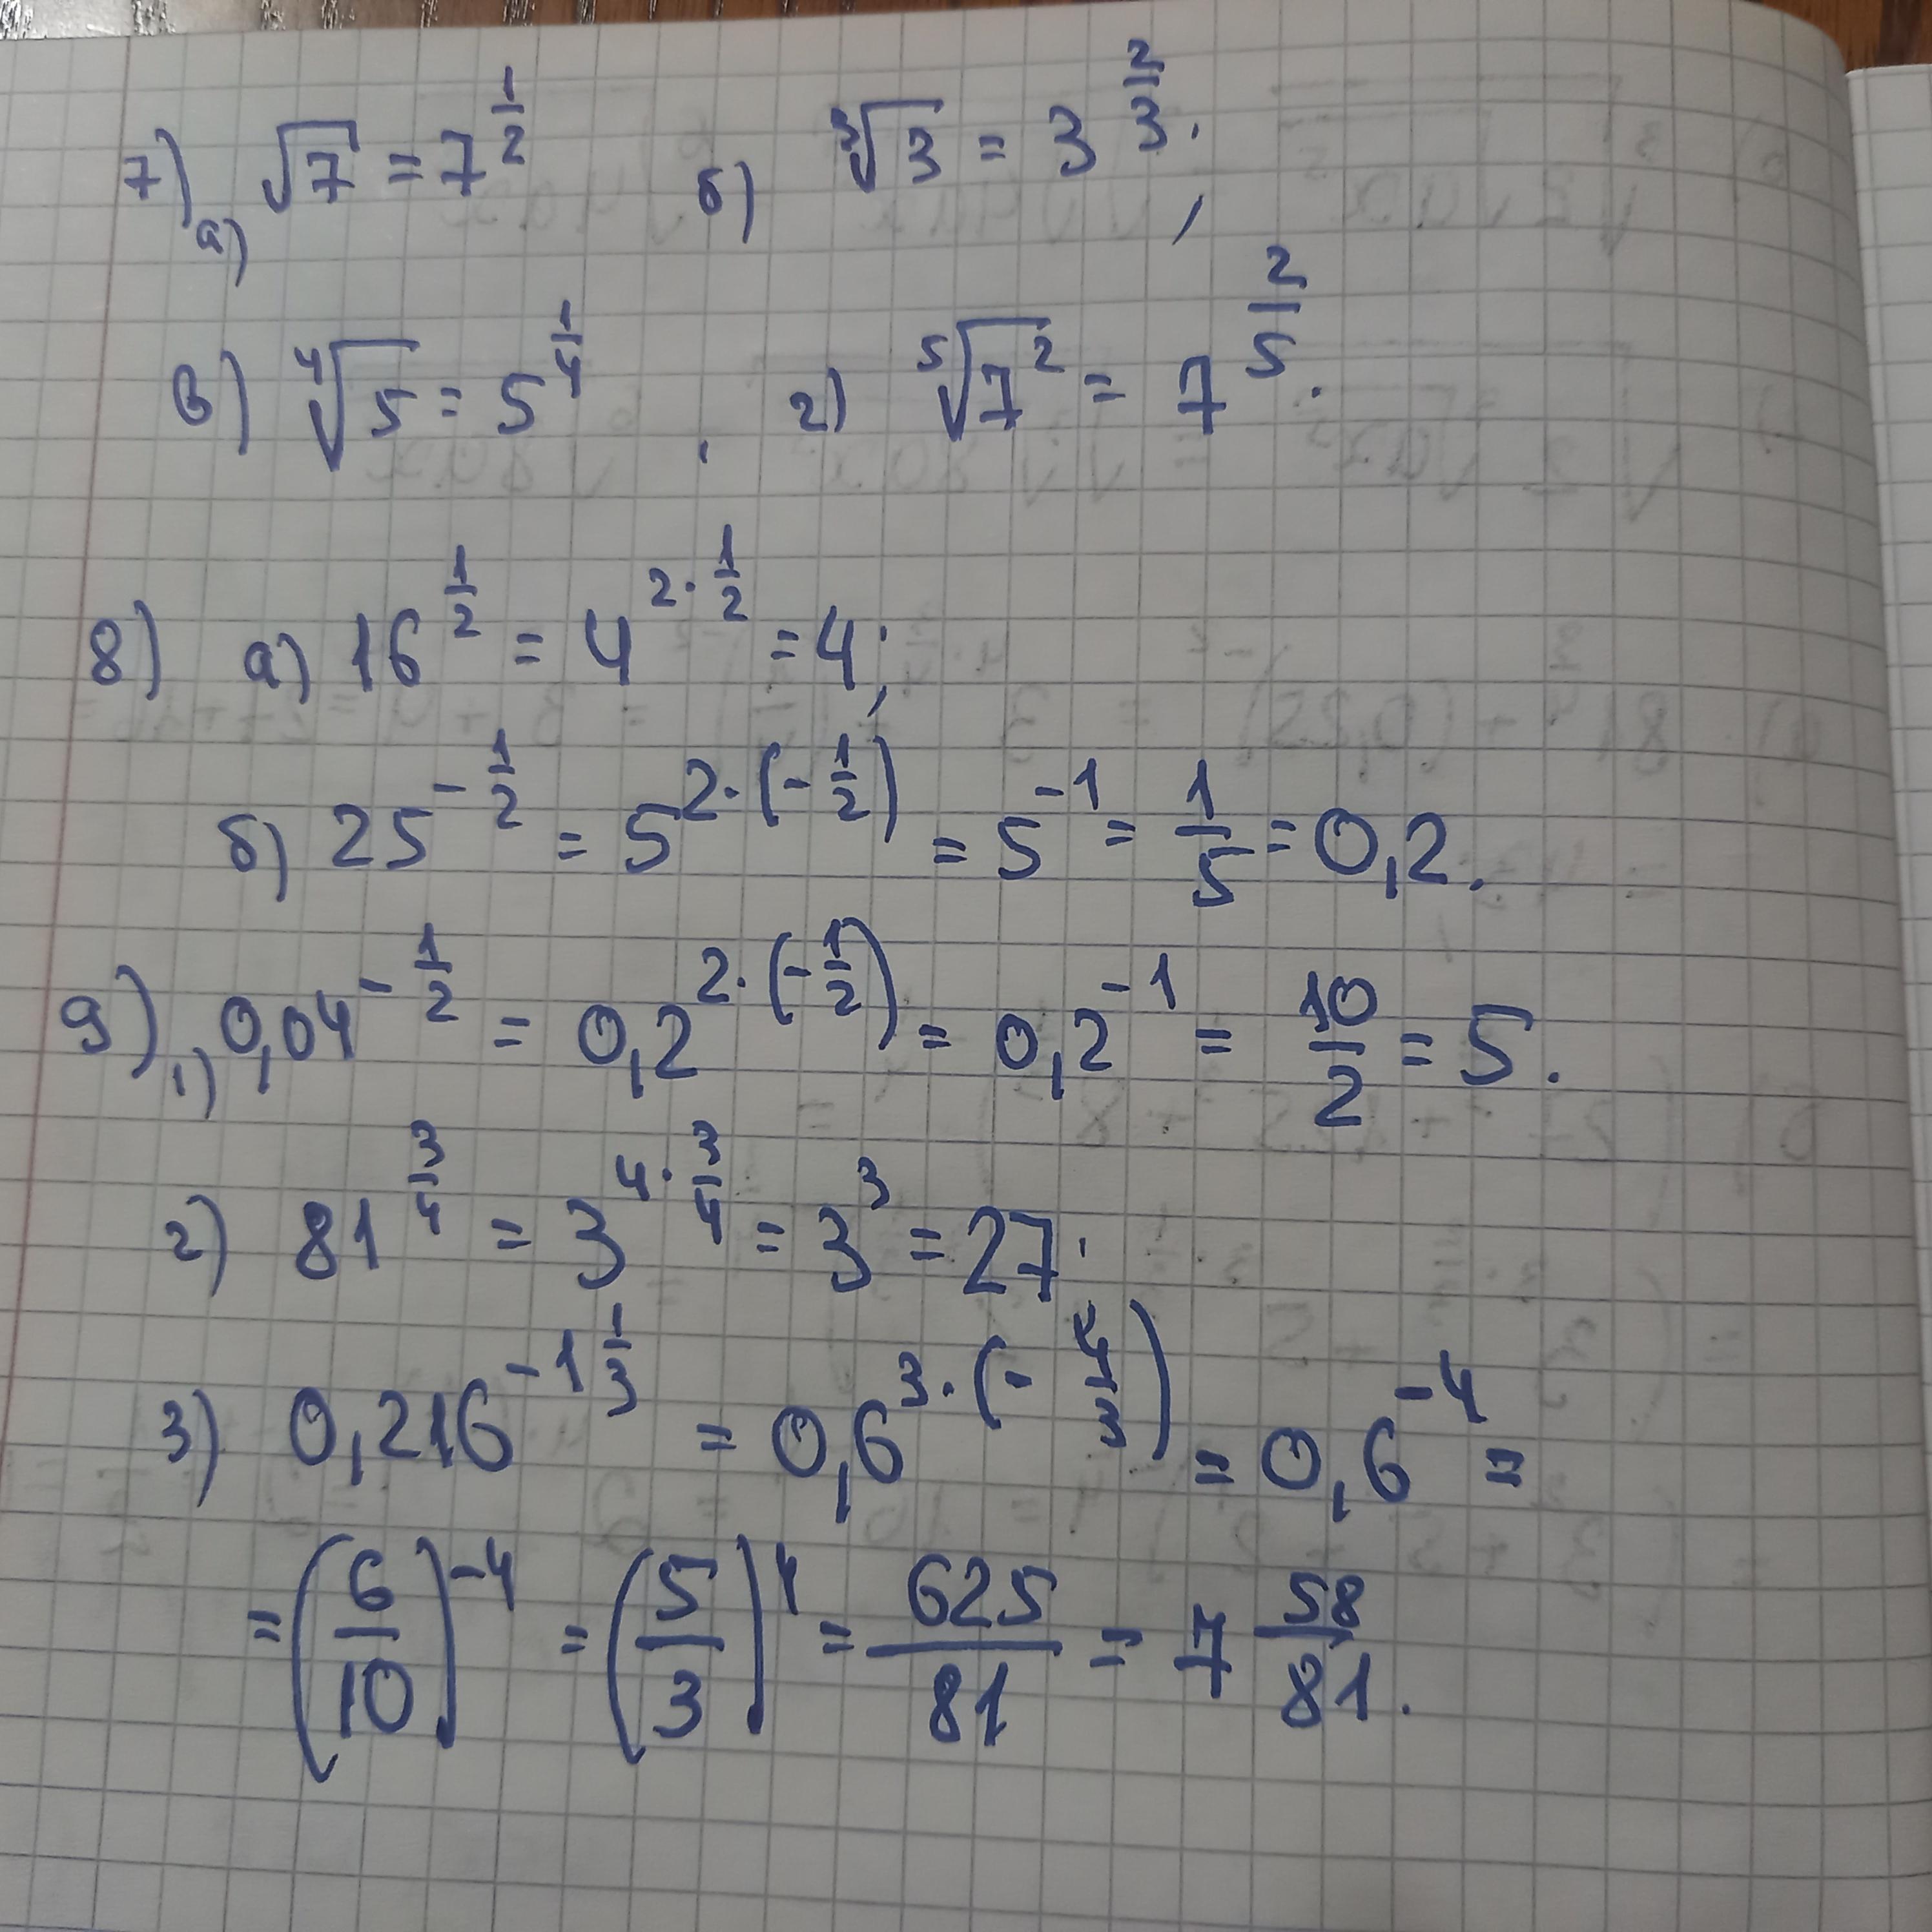 7) а) √7 = 7^(1/2) б) ∛3 = 3^(2/3);
в) ∜5 = 5^(1/4), г) ⁵√7² = 7^(2/5).
8) а) 16^(1/2) = 4^(2·1/2) = 4;
б) 25^(-1/2) = 5^(2·(-1/2)) = 5^(-1) = 1/5 = 0,2.
9) 1) 0,04^(-1/2) = 0,2^(2·(-1/2)) = 0,2^(-1) = 10/2 = 5.
2) 81^(3/4) = 3^(4·3/4) = 3^3 = 27.
3) 0,216^(-1 1/3) = 0,6^(3·(-4/3)) = 0,6^(-4) =
= (6/10)^(-4) = (5/3)^4 = 625/81 = 7 58/81.